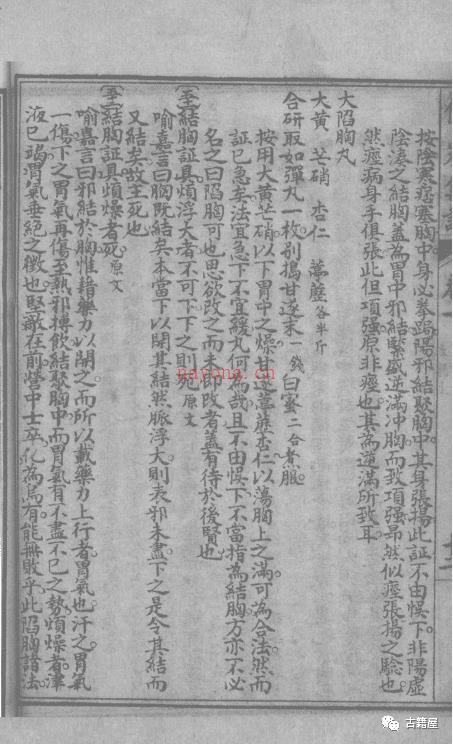 按陰寒痞塞胸中身必拳跼陽邪結聚胸中其身張揚此証不由悞下非陽虛
陰湊之結胸蓋為胃中邪結緊盛逆滿冲胸而致項强昂然似痙張揚之驗也
然痙病身手俱張此但項强原非痙也其為逆滿所致耳
大陷胸丸
大黃 芒硝 杏仁 葶藶各半斤
合研取如彈丸一枚别搗甘遂末一錢白蜜二合煮服
按用大黃芒硝以下胃中之燥甘遂葶藶杏仁以蕩胸上之滿可為合法然而
証已急矣法宜急下不宜緩丸何為哉且不由悞下不當指為結胸方亦不必
名之曰陷胸可也思欲改之而未即改者蓋有待於後賢也
結胸証具脉浮大者不可下下之則死原文
喻嘉言曰胸既結矣本當下以開其結然脈浮大則表邪未盡下之是令其結而
又結矣故主死也
結胸証具煩燥者死原文
喻嘉言曰邪結於胸惟藉藥力以開之而所以載藥力上行者胃氣也汗之胃氣
一傷下之胃氣再傷至熱邪摶飲結聚胸中而胃氣有不盡不已之勢煩燥者津
液已竭胃氣垂絕之徵也堅敵在前營中士卒化為烏有能無敗乎此陷胸諸法
nayona.cn
古籍屋